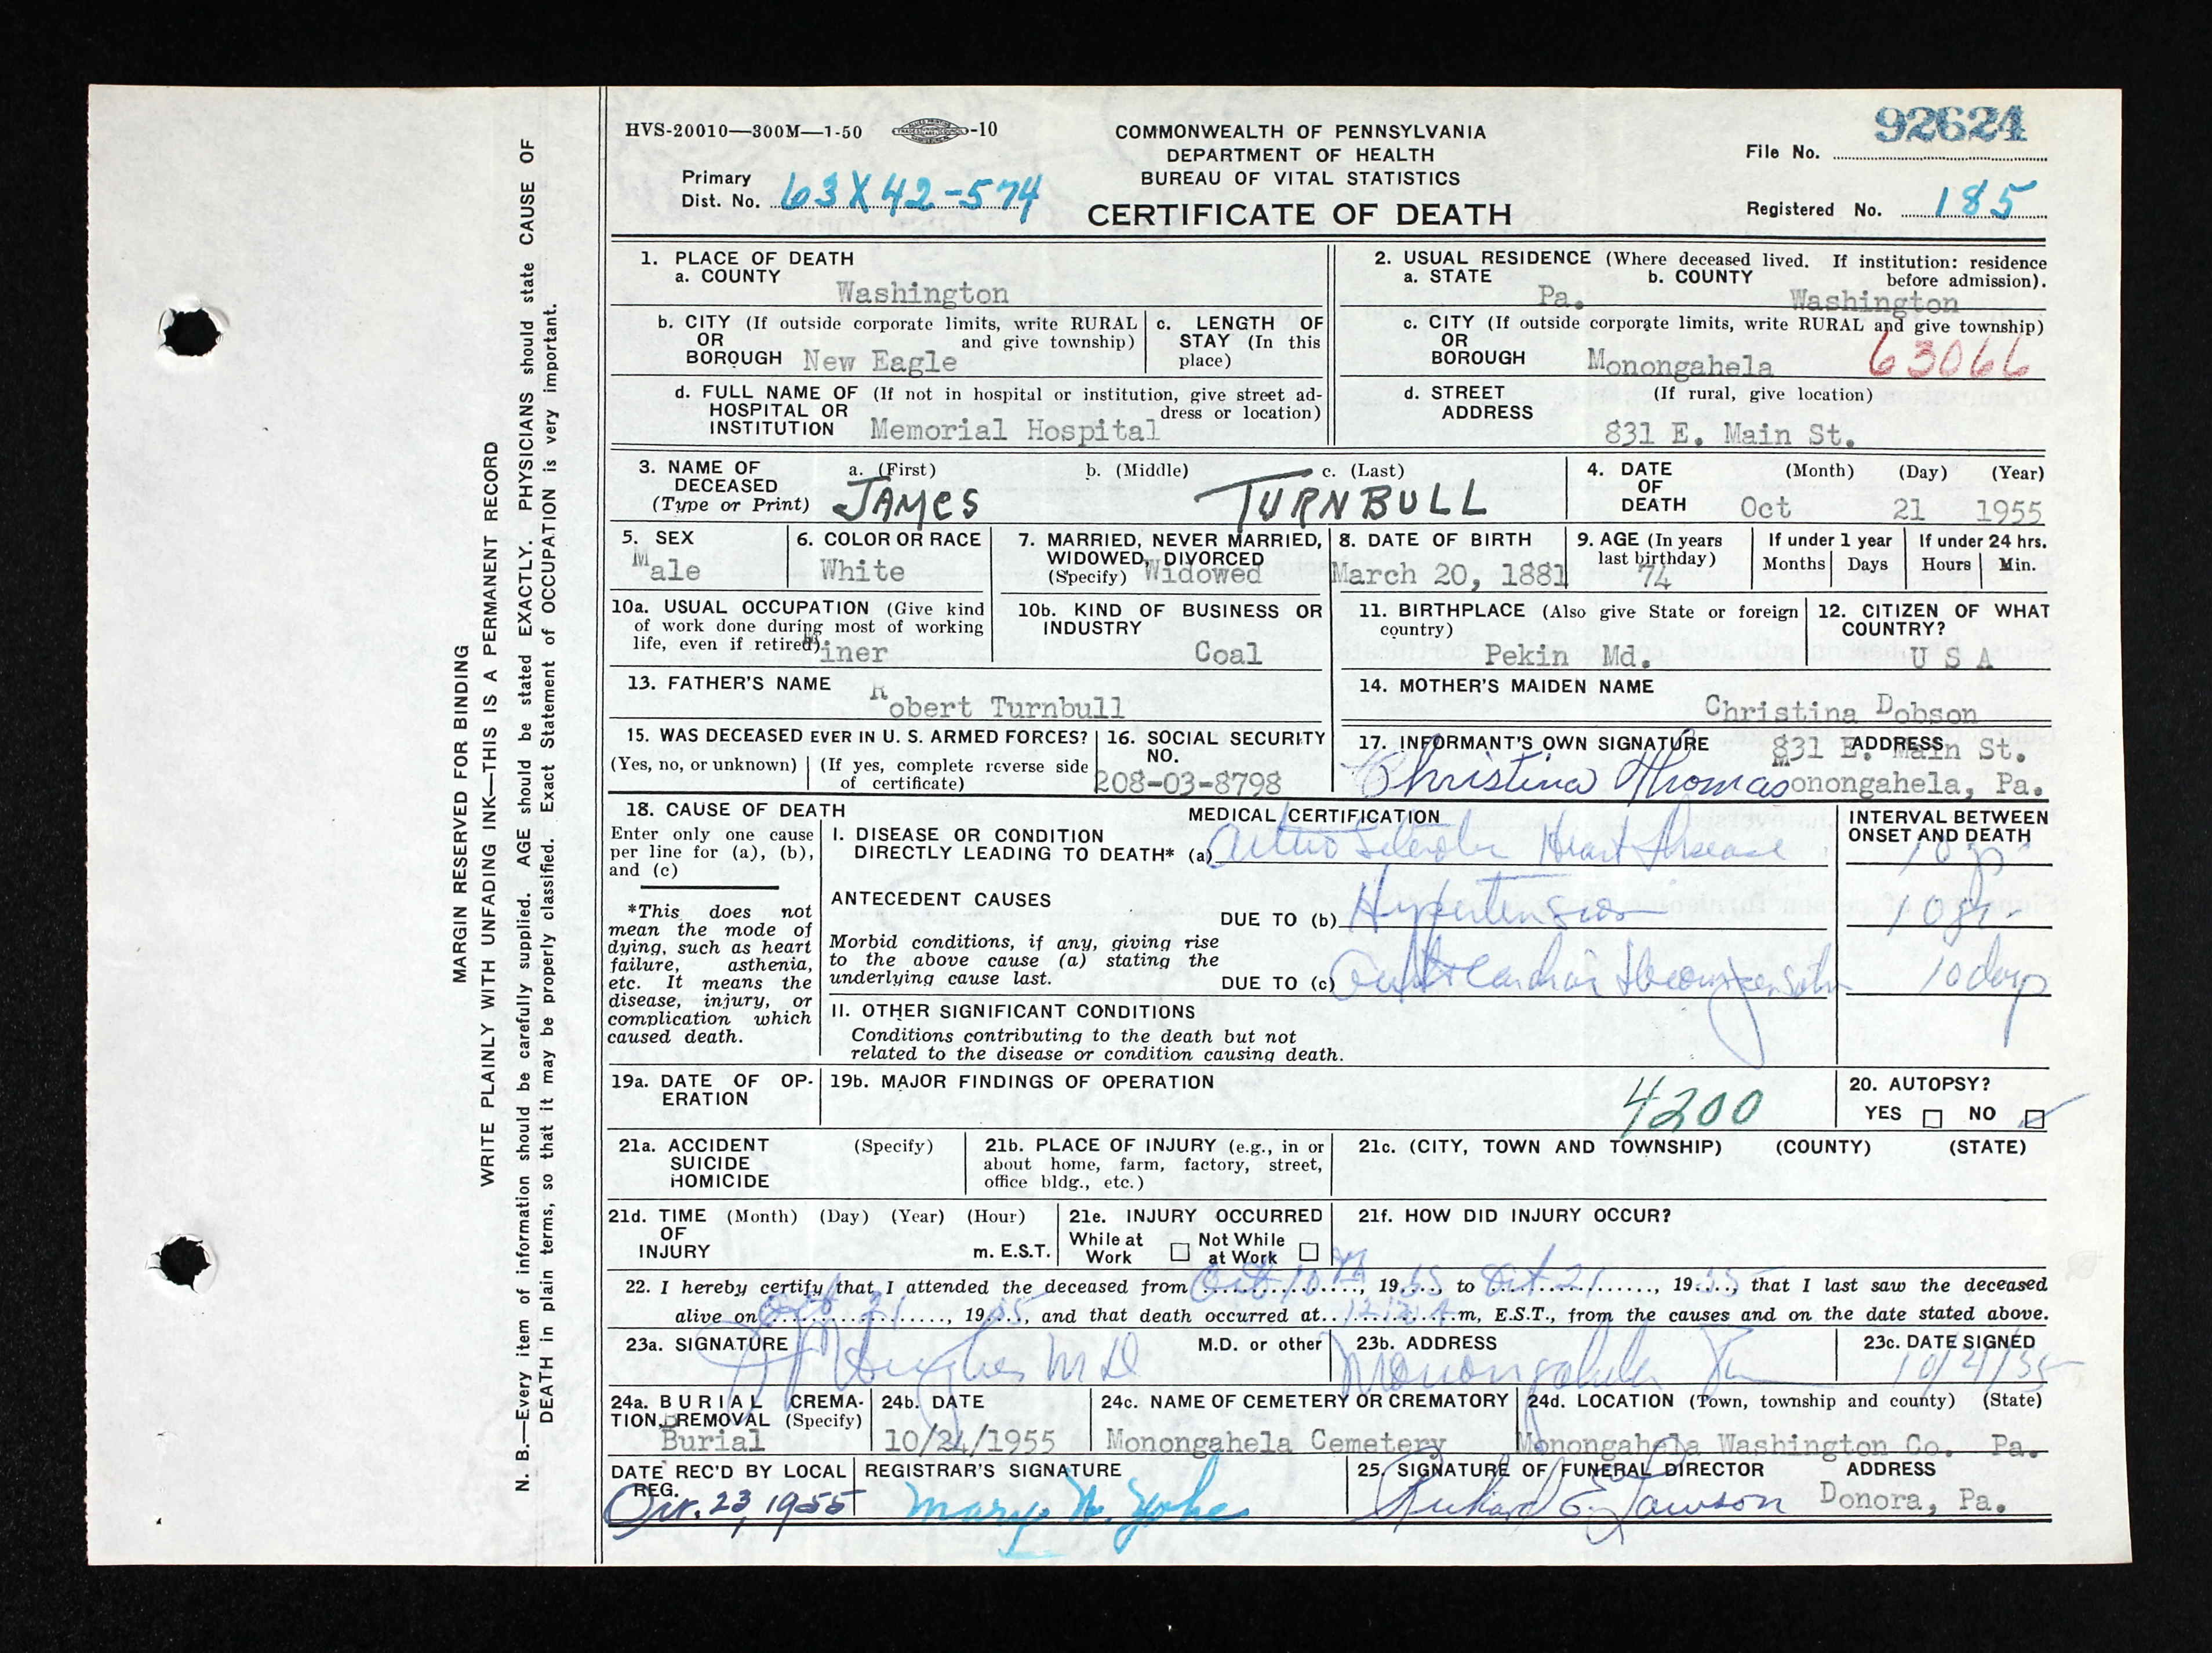 HVS-20010—300M—1-50 -10
COMMONWEALTH OF PENNSYLVANIA
DEPARTMENT OF HEALTH
BUREAU OF VITAL STATISTICS
CERTIFICATE OF DEATH
Primary
Dist. No. 63X42-574
92624
File No.
Registered No. 185
MARGIN RESERVED FOR BINDING
WRITE PLAINLY WITH UNFADING INK—THIS IS A PERMANENT RECORD
N. B.—Every item of information should be carefully supplied. AGE should be stated EXACTLY. PHYSICIANS should state CAUSE OF
DEATH in plain terms, so that it may be properly classified. Exact Statement of OCCUPATION is very important.
1. PLACE OF DEATH
a. COUNTY
Washington
2. USUAL RESIDENCE (Where deceased lived. If institution: residence
a. STATE b. COUNTY before admission).
Pa. Washington
b. CITY (If outside corporate limits, write RURAL
OR and give township)
BOROUGH New Eagle
c. LENGTH OF
STAY (In this
place)
c. CITY (If outside corporate limits, write RURAL and give township)
OR
BOROUGH Monongahela 63066
d. FULL NAME OF (If not in hospital or institution, give street ad-
HOSPITAL OR dress or location)
INSTITUTION Memorial Hospital
d. STREET (If rural, give location)
ADDRESS
831 E. Main St.
3. NAME OF a. (First) b. (Middle) c. (Last)
DECEASED
(Type or Print) JAMES TURNBULL
4. DATE (Month) (Day) (Year)
OF
DEATH Oct 21 1955
5. SEX
Male
6. COLOR OR RACE
White
7. MARRIED, NEVER MARRIED,
WIDOWED, DIVORCED
(Specify) Widowed
8. DATE OF BIRTH
March 20, 1881
9. AGE (In years
last birthday)
74
If under 1 year
Months Days
If under 24 hrs.
Hours Min.
10a. USUAL OCCUPATION (Give kind
of work done during most of working
life, even if retired)
Miner
10b. KIND OF BUSINESS OR
INDUSTRY
Coal
11. BIRTHPLACE (Also give State or foreign
country)
Pekin Md.
12. CITIZEN OF WHAT
COUNTRY?
U S A
13. FATHER'S NAME
Robert Turnbull
14. MOTHER'S MAIDEN NAME
Christina Dobson
15. WAS DECEASED EVER IN U. S. ARMED FORCES?
(Yes, no, or unknown) (If yes, complete reverse side
of certificate)
16. SOCIAL SECURITY
NO.
208-03-8798
17. INFORMANT'S OWN SIGNATURE ADDRESS
831 E. Main St.
Christina Thomas Monongahela, Pa.
18. CAUSE OF DEATH
Enter only one cause
per line for (a), (b),
and (c)
*This does not
mean the mode of
dying, such as heart
failure, asthenia,
etc. It means the
disease, injury, or
complication which
caused death.
MEDICAL CERTIFICATION
I. DISEASE OR CONDITION
DIRECTLY LEADING TO DEATH* (a) Heart Disease
ANTECEDENT CAUSES
DUE TO (b) Hypertension
Morbid conditions, if any, giving rise
to the above cause (a) stating the
underlying cause last.
DUE TO (c)
II. OTHER SIGNIFICANT CONDITIONS
Conditions contributing to the death but not
related to the disease or condition causing death.
INTERVAL BETWEEN
ONSET AND DEATH
10 yr
10 yr
10 days
19a. DATE OF OP-
ERATION
19b. MAJOR FINDINGS OF OPERATION
4200
20. AUTOPSY?
YES NO
21a. ACCIDENT (Specify)
SUICIDE
HOMICIDE
21b. PLACE OF INJURY (e.g., in or
about home, farm, factory, street,
office bldg., etc.)
21c. (CITY, TOWN AND TOWNSHIP) (COUNTY) (STATE)
21d. TIME (Month) (Day) (Year) (Hour)
OF
INJURY m. E.S.T.
21e. INJURY OCCURRED
While at Not While
Work at Work
21f. HOW DID INJURY OCCUR?
22. I hereby certify that I attended the deceased from Oct 10th, 1955 to Oct 21, 1955 that I last saw the deceased
alive on Oct 21, 1955, and that death occurred at m, E.S.T., from the causes and on the date stated above.
23a. SIGNATURE M.D. or other
Hughes M D
23b. ADDRESS
Monongahela
23c. DATE SIGNED
10/21/55
24a. BURIAL CREMA-
TION, REMOVAL (Specify)
Burial
24b. DATE
10/24/1955
24c. NAME OF CEMETERY OR CREMATORY
Monongahela Cemetery
24d. LOCATION (Town, township and county) (State)
Monongahela Washington Co. Pa.
DATE REC'D BY LOCAL
REG.
Oct. 23, 1955
REGISTRAR'S SIGNATURE
Mary N. Yohe
25. SIGNATURE OF FUNERAL DIRECTOR ADDRESS
Richard E. Lawson Donora, Pa.